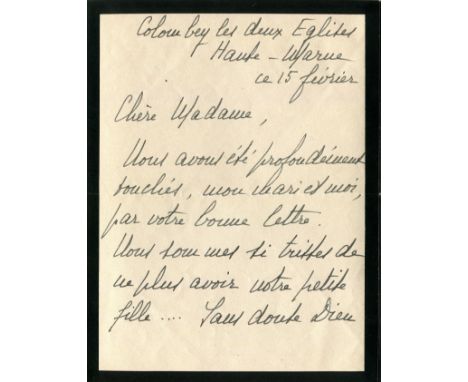 Colombey les deux Eglises
Haute-Marne
ce 15 février
Chère Madame,
Nous avons été profondément
touchés, mon mari et moi,
par votre bonne lettre.
Nous sommes si tristes de
ne plus avoir notre petite
fille .... Sans doute Dieu